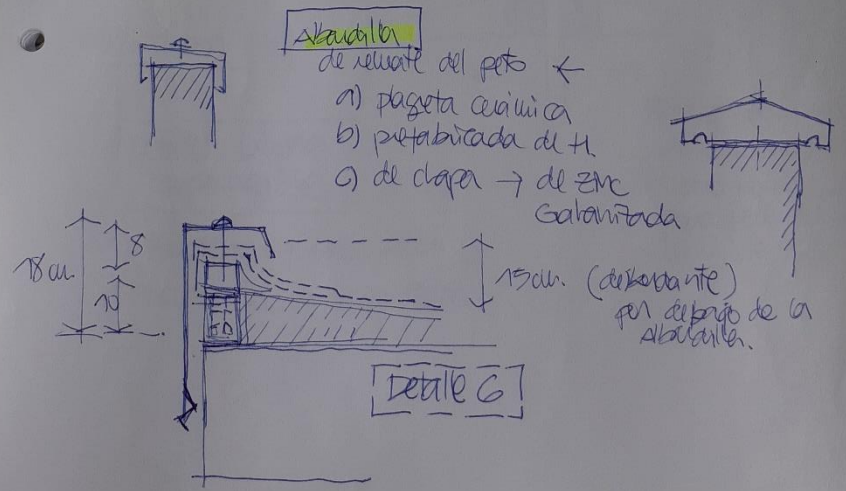 Albardilla
de remate del peto ←
a) plaqueta cerámica
b) prefabricada de H.
c) de chapa → de zinc
Galvanizada
18 cm.
8
10
15 cm. (desbordante)
por debajo de la
Albardilla.
Detalle 6